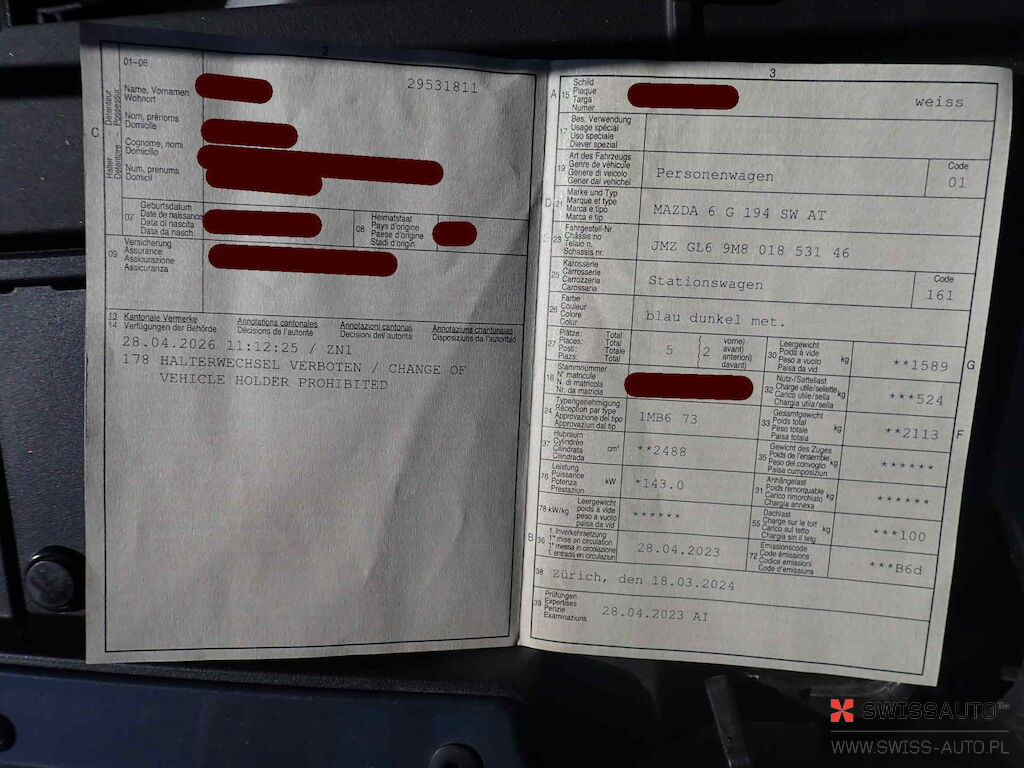 2
01-06
Halter
Détenteur
Detentore
Possessur
C
Name, Vornamen
Wohnort
Nom, prénoms
Domicile
Cognome, nomi
Domicilio
Num, prenums
Domicil
29531811
07
Geburtsdatum
Date de naissance
Data di nascita
Data da nasch.
08
Heimatstaat
Pays d'origine
Paese d'origine
Stadi d'origin
09
Versicherung
Assurance
Assicurazione
Assicuranza
13
14
Kantonale Vermerke
Verfügungen der Behörde
Annotations cantonales
Décisions de l'autorité
Annotazioni cantonali
Decisioni dell'autorità
Annotaziuns chantunalas
Disposiziuns da l'autoritad
28.04.2026 11:12:25 / ZN1
178 HALTERWECHSEL VERBOTEN / CHANGE OF
VEHICLE HOLDER PROHIBITED
3
A
15
Schild
Plaque
Targa
Numer
weiss
17
Bes. Verwendung
Usage spécial
Uso speciale
Diever spezial
19
Art des Fahrzeugs
Genre de véhicule
Genere di veicolo
Gener dal vehichel
Personenwagen
Code
01
D
21
Marke und Typ
Marque et type
Marca e tipo
Marca e tip
MAZDA 6 G 194 SW AT
E
23
Fahrgestell-Nr.
Châssis no
Telaio n.
Schassis nr.
JMZ GL6 9M8 018 531 46
25
Karosserie
Carrosserie
Carrozzeria
Carossaria
Stationswagen
Code
161
26
Farbe
Couleur
Colore
Colur
blau dunkel met.
27
Plätze: Total
Places: Total
Posti: Totale
Plazs: Total
5
( 2
vorne)
avant)
anteriori)
davant)
30
Leergewicht
Poids à vide
Peso a vuoto
Paisa vid
kg
**1589
G
18
Stammnummer
N° matricule
N. di matricola
Nr. da matricla
32
Nutz-/Sattellast
Charge utile/sellette
Carico utile/sella
Chargia utila/sella
kg
***524
24
Typengenehmigung
Réception par type
Approvazione del tipo
Approvaziun dal tip
1MB6 73
33
Gesamtgewicht
Poids total
Peso totale
Paisa totala
kg
**2113
F
37
Hubraum
Cylindrée
Cilindrata
Cilindrada
cm³
**2488
35
Gewicht des Zuges
Poids de l'ensemble
Peso del convoglio
Paisa cumposiziun
kg
******
76
Leistung
Puissance
Potenza
Prestaziun
kW
*143.0
31
Anhängelast
Poids remorquable
Carico rimorchiato
Chargia annexa
kg
******
78 kW/kg
Leergewicht
poids à vide
peso a vuoto
paisa da vid
******
55
Dachlast
Charge sur le toit
Carico sul tetto
Chargia sin il tetg
kg
***100
B
36
1. Inverkehrsetzung
1re mise en circulation
1a messa in circolazione
1. entrada en circulaziun
28.04.2023
72
Emissionscode
Code émissions
Codice emissioni
Code d'emissiuns
***B6d
38
Zürich, den 18.03.2024
39
Prüfungen
Expertises
Perizie
Examinaziuns
28.04.2023 AI
SWISSAUTO™
WWW.SWISS-AUTO.PL